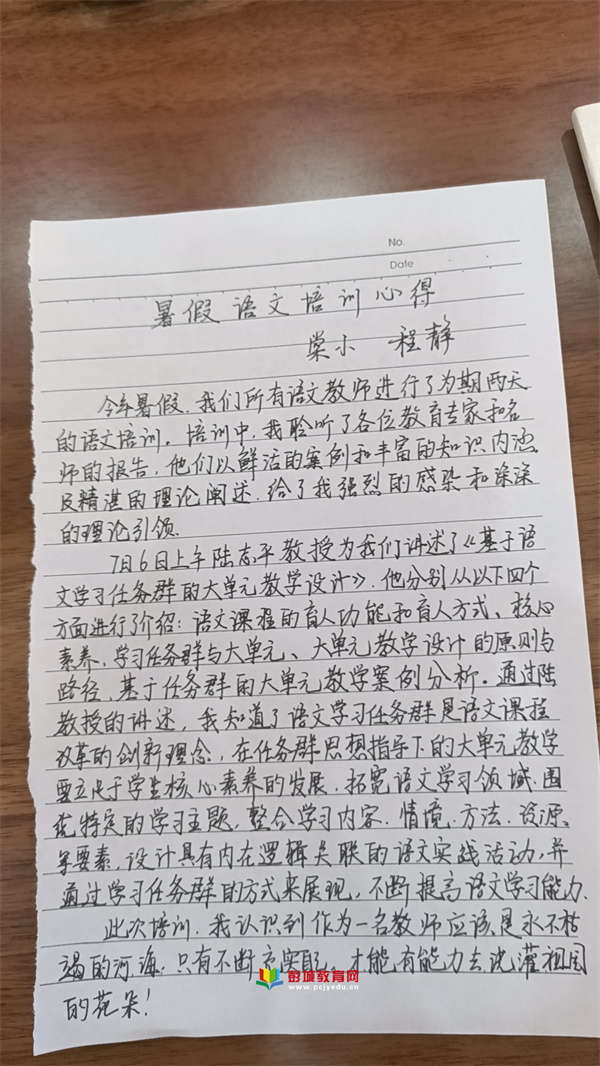 No.
Date
暑假语文培训心得
棠小 程静
今年暑假,我们所有语文教师进行了为期两天
的语文培训。培训中,我聆听了各位教育专家和名
师的报告,他们以鲜活的案例和丰富的知识内涵
及精湛的理论阐述,给了我强烈的感染和深深
的理论引领.
7月6日上午陆志平教授为我们讲述了《基于语
文学习任务群的大单元教学设计》.他分别从以下四个
方面进行了介绍:语文课程的育人功能和育人方式、核心
素养、学习任务群与大单元、大单元教学设计的原则与
路径、基于任务群的大单元教学案例分析。通过陆
教授的讲述,我知道了语文学习任务群是语文课程
改革的创新理念,在任务群思想指导下的大单元教学
要立足于学生核心素养的发展,拓宽语文学习领域.围
绕特定的学习主题,整合学习内容.情境.方法.资源.
等要素,设计具有内在逻辑关联的语文实践活动,并
通过学习任务群的方式来展现,不断提高语文学习能力.
此次培训,我认识到作为一名教师应该是永不枯
竭的河海,只有不断充实自己,才能有能力去浇灌祖国
的花朵!
彭城教育网
www.pcjyedu.cn